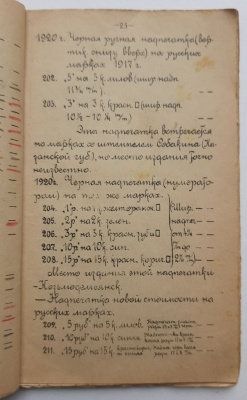 - 23 -
1920 г. Черная ручная надпечатка (вер-
тик. снизу вверх) на русских
марках 1917 г.
202. „5" на 5 к. лилов (шир надп.
203. „3" на 3 к. красн. (шир. надп.
Эта надпечатка встречается
на марках со штемпелем Собакина (Ка-
занской губ), но место издания точно
неизвестно.
1920г. Черная надпечатка (нумерато-
ром) на тех же марках.
204. „1" р. на 1 к. желторанж Шир.
205. „2 р" на 2 к зелен. надпе-
206. „3 р" на 3 к. красн.
207. „10 р" на 10 к. син.
208. „15 р" на 15 к. красн. корич
Место издания этой надпечатки
- Козьмодемьянск.
- Надпечатка новой стоимости на
русских марках.
209. „5 руб" на 5 к. лилов.
210. „10 руб" на 10 к. синяя
211. „15 руб на 15 к.